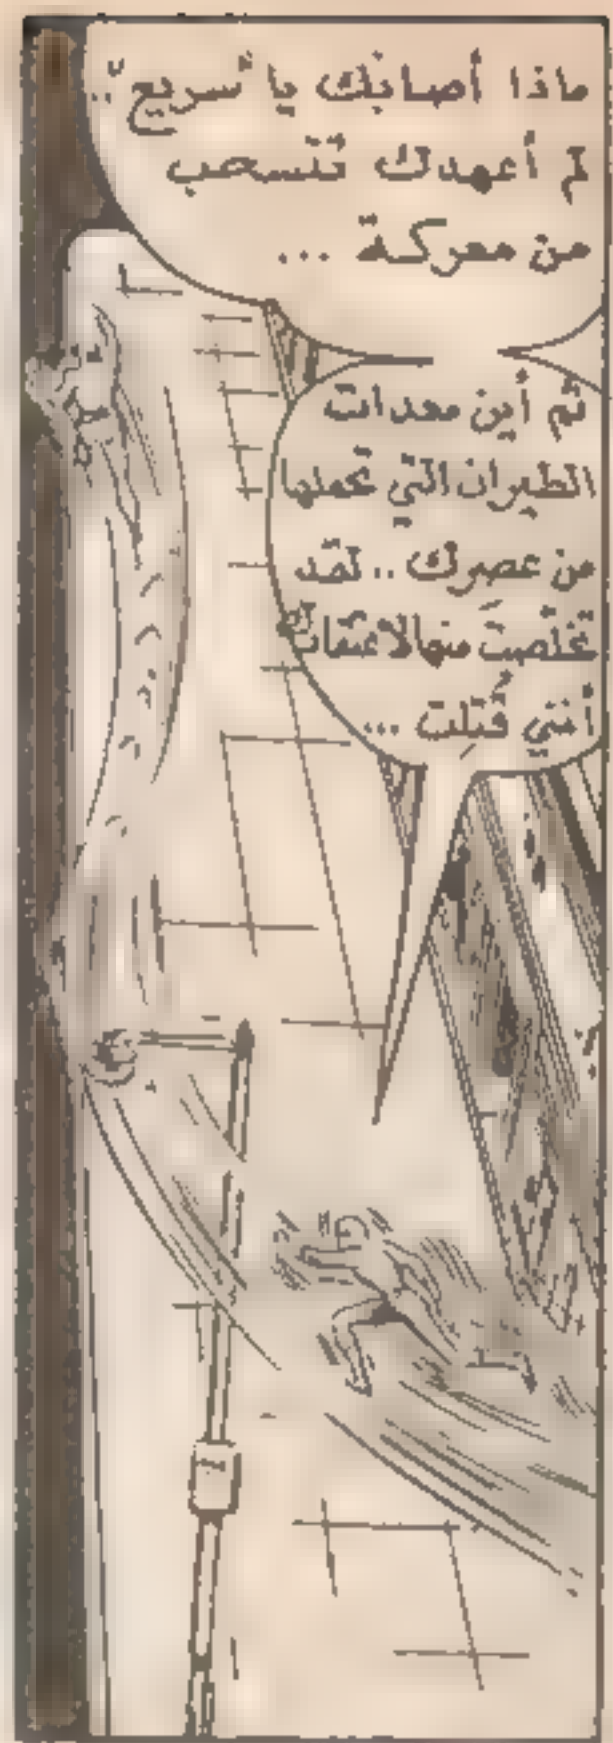 ماذا أصابك يا "سريع"..
لم أعهدك تنسحب
من معركة ...
ثم أين معدات
الطيران التي تحملها
من عصرك .. لقد
تخلصتَ منها لاعتقادك
أنني قُتِلت ...